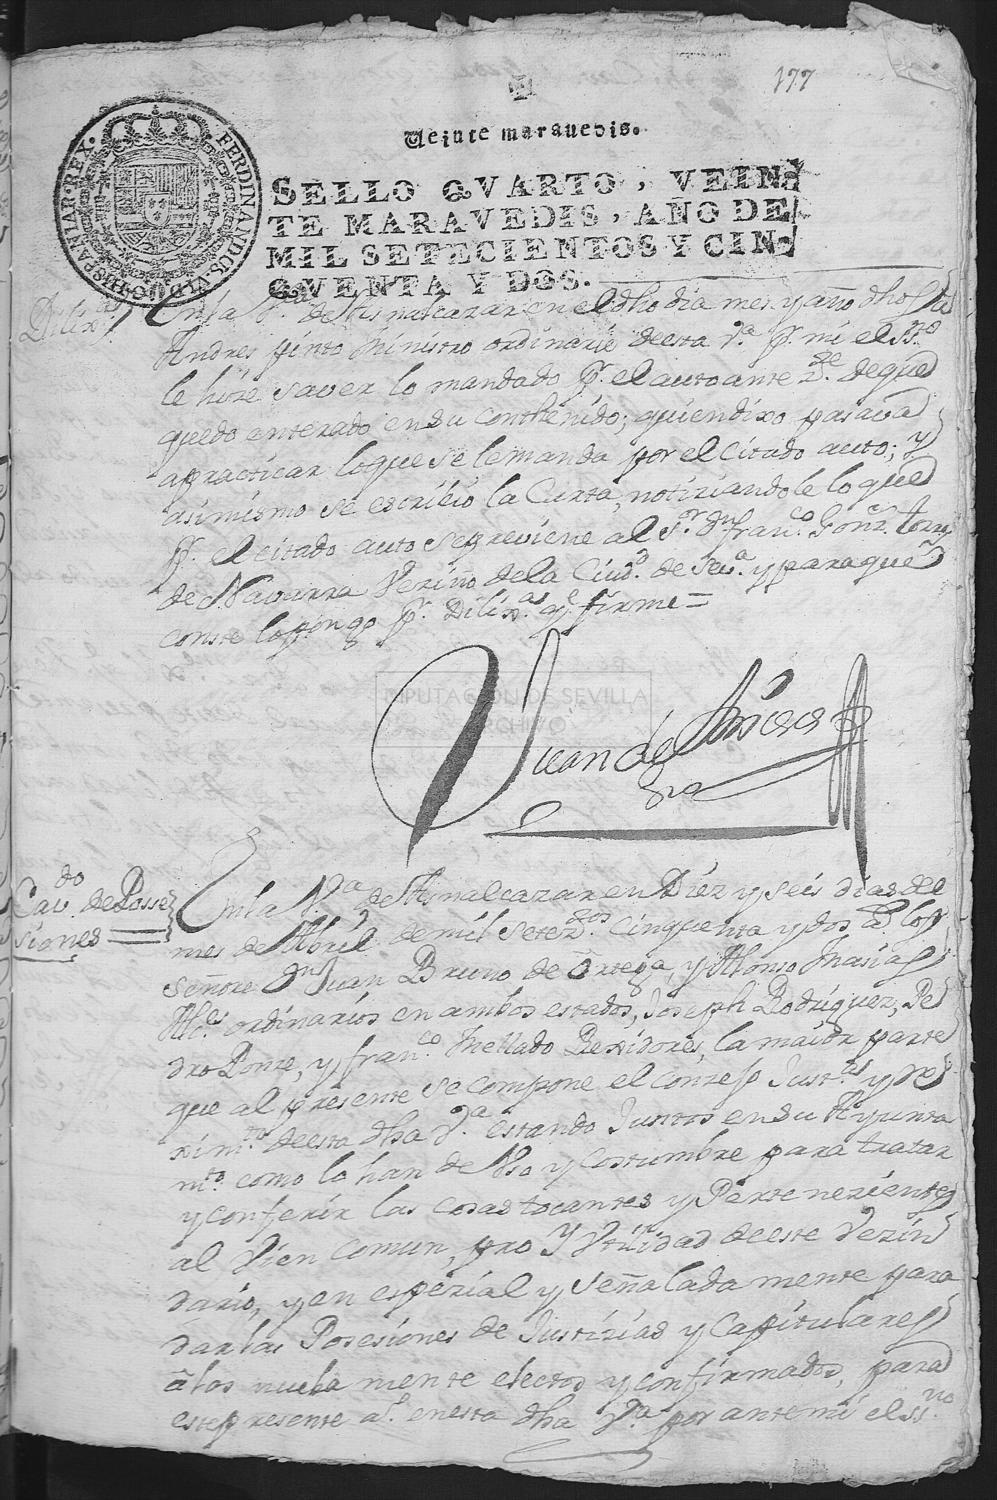 177
Veinte maravedis.
FERDINANDUS. VI. D. G. HISPANIAR. REX.
SELLO QVARTO, VEIN-
TE MARAVEDIS, AÑO DE
MIL SETECIENTOS Y CIN-
QVENTA Y DOS.
Dilixa
En la Va. de Asnalcazar en el dho dia mes y año dhos
Andres pinto Ministro ordinario deesta Va. pr. mi el ssno
le hize saver lo mandado pr. el auto ante zde. de que
quedo enterado en su conthenido; quien dixo pasava
apracticar loque se le manda por el citado auto; y
asimismo se escribio la Carta, notiziandole lo que
pr. el citado auto se previene al Sor. dn franco. Gonz.
de Navarra Vezino de la Ciudd. de Seva. y para que
conste lo pongo pr. Dilixas. qe firme =
Juan de
DIPUTACION DE SEVILLA
ARCHIVO
Cavdo. de Posse
siones =
En la Va. de Asnalcazar en Diez y seis dias del
mes de Abril de mil setezdos. cinquenta y dos as. los
señores Dn Juan Bruno de Ortega, y Alonso Masias
Alles ordinarios en ambos estados, Joseph Rodriguez, Pe
dro Ponze, y franco. Mellado Rexidores, la maior parte
que al presente se compone el Conzejo Justas y Re
ximto. deesta dha Va. estando Juntos en su Ayunta
mto. como lo han de Vso y costumbre para tratar
y conferir las cosas tocantes y Pertenezientes
al Vien Comun, pro Y Vtilidad de este Vezin
dario, y en espezial y señaladamente para
dar las Posesiones de Justizias y Capitulares
a los nueba mente electos y confirmados, para
este presente as. en esta dha Va. por ante mi el ssno